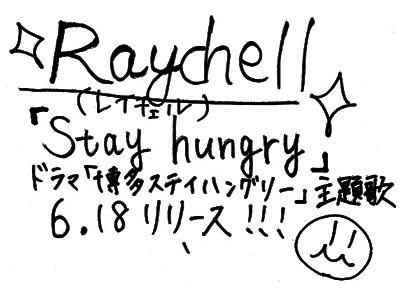 Raychell
(レイチェル)
「Stay hungry」
ドラマ「博多ステイハングリー」主題歌
6.18 リリース!!!